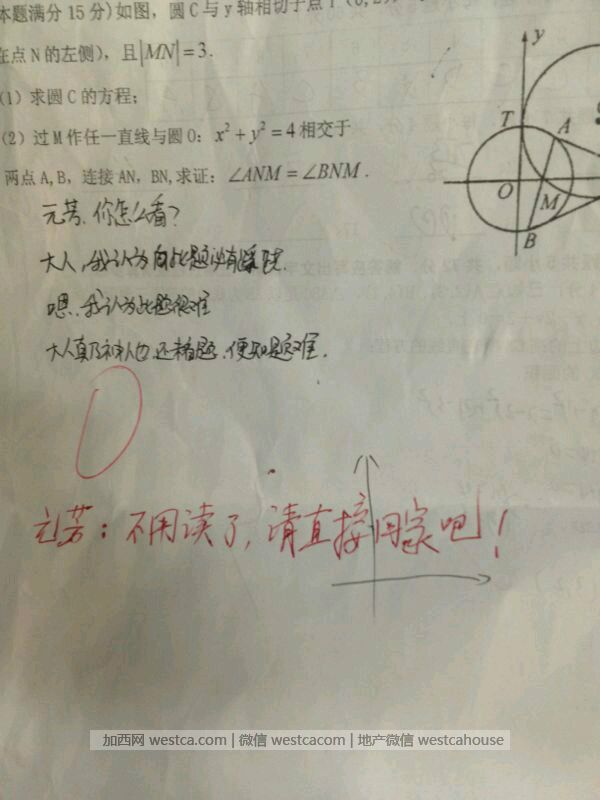 本题满分 15 分)如图，圆 C 与 y 轴相切于点 T (0, 2),
在点 N 的左侧)，且|MN|=3.
(1) 求圆 C 的方程;
(2) 过 M 作任一直线与圆 O: x²+y²=4 相交于
两点 A, B, 连接 AN, BN, 求证: ∠ANM=∠BNM.
y
T
A
O
M
B
元芳,你怎么看?
大人,我认为此题必有蹊跷.
嗯,我认为此题很难
大人真乃神人也,还看题,便知是难.
元芳:不用读了,请直接回家吧!
加西网 westca.com | 微信 westcacom | 地产微信 westcahouse